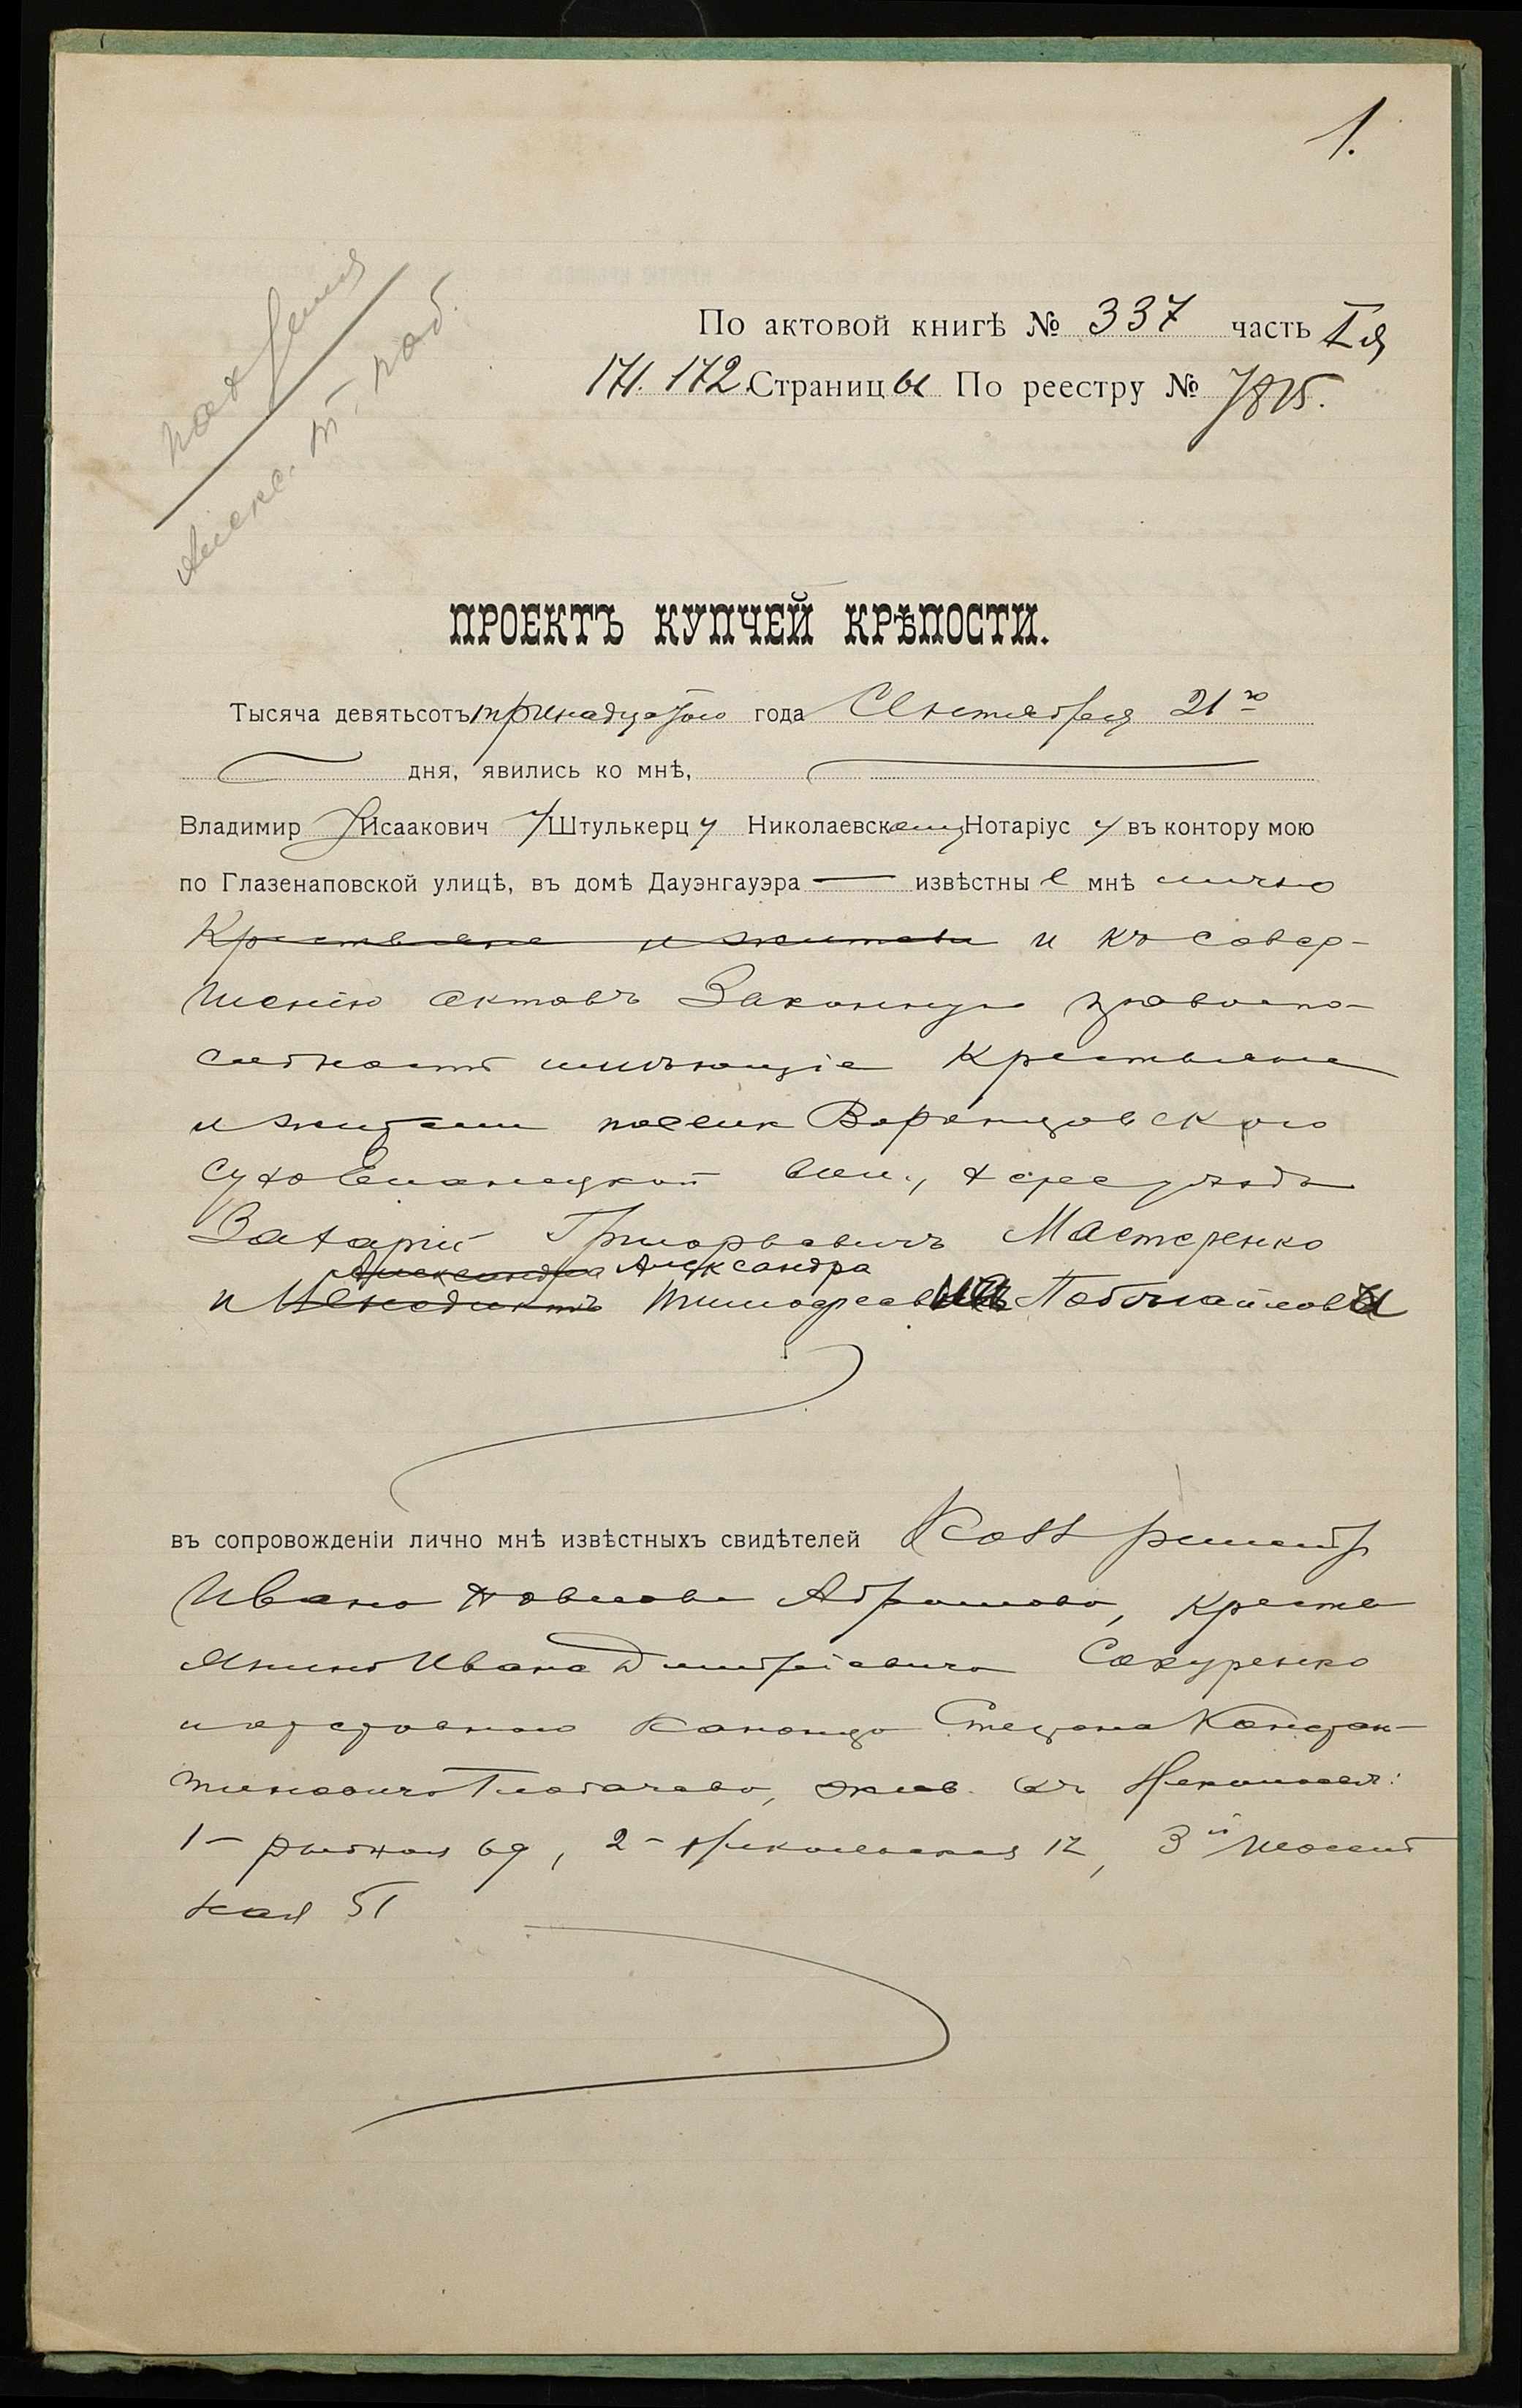 1.
По актовой книгѣ № 337 часть I я
171. 172 Страницы По реестру № 7815.
ПРОЕКТЪ КУПЧЕЙ КРѢПОСТИ.
Тысяча девятьсотъ тринадцатого года Сентября 21го
дня, явились ко мнѣ,
Владимир у Исаакович у Штулькерц у Николаевскому Нотаріус у въ контору мою
по Глазенаповской улицѣ, въ домѣ Дауэнгауэра — извѣстны е мнѣ лично
Крестьяне и жители и къ совер-
шенію актовъ законную правоспо-
собность имѣющіе Крестьяне
и жители Воронцовского
Сухо Еланецкой вол.,
Захарій Григорьевичъ Мастеренко
Александра Александра
и Тимофеев
въ сопровожденіи лично мнѣ извѣстныхъ свидѣтелей
Ивана Абрамова, кресть
янина Ивана Димитріевича Сакуренко
Степана Констан-
тиновича жив. въ Николаевѣ:
1- 69, 2- Никольская 12, 3й
ная 51